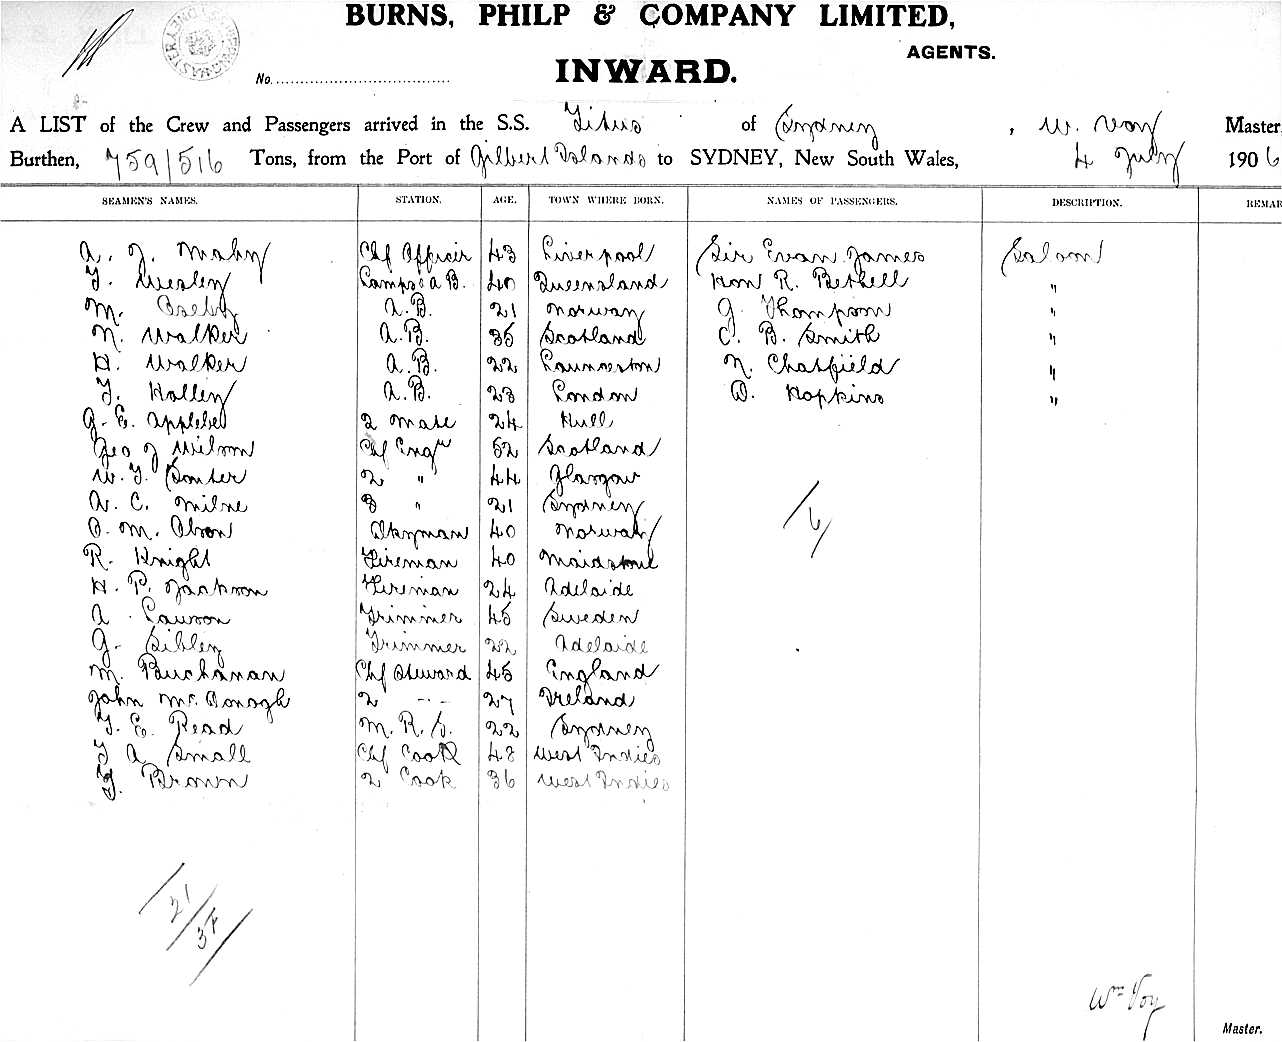 BURNS, PHILP & COMPANY LIMITED,
AGENTS.
No.
INWARD.
A LIST of the Crew and Passengers arrived in the S.S. Titus of Sydney, W. Voy Master,
Burthen, 759/516 Tons, from the Port of Gilbert Islands to SYDNEY, New South Wales, 4 July 1906
SEAMEN'S NAMES. STATION. AGE. TOWN WHERE BORN. NAMES OF PASSENGERS. DESCRIPTION. REMAR
A. J. Chf Officer 43 Liverpool Sir Evan James Saloon
T. Wesley A.B. 40 Queensland Hon R. Bethell "
M. A.B. 21 Norway G. Thompson "
N. Walker A.B. 35 Scotland C. B. Smith "
H. Walker A.B. 22 Launceston N. Chatfield "
T. Holley A.B. 23 London D. Hopkins "
G. E. Applebee 2 Mate 24 Hull
Geo J Wilson Chf Engr 52 Scotland
W. T. 2 " 44 Glasgow
A. C. Milne 3 " 21 Sydney
O. M. Olson Dkyman 40 Norway
R. Knight Fireman 40 Maidstone
H. P. Jackson Fireman 24 Adelaide
A Lawson Trimmer 45 Sweden
G. Sibley Trimmer 22 Adelaide
M. Buchanan Chf Steward 45 England
John McDonagh 2 " 27 Ireland
T. E. Read M.R.S. 22 Sydney
T A Small Chf Cook 48 West Indies
T. Brown 2 Cook 36 West Indies
/6/
/21/
Wm Voy
Master.